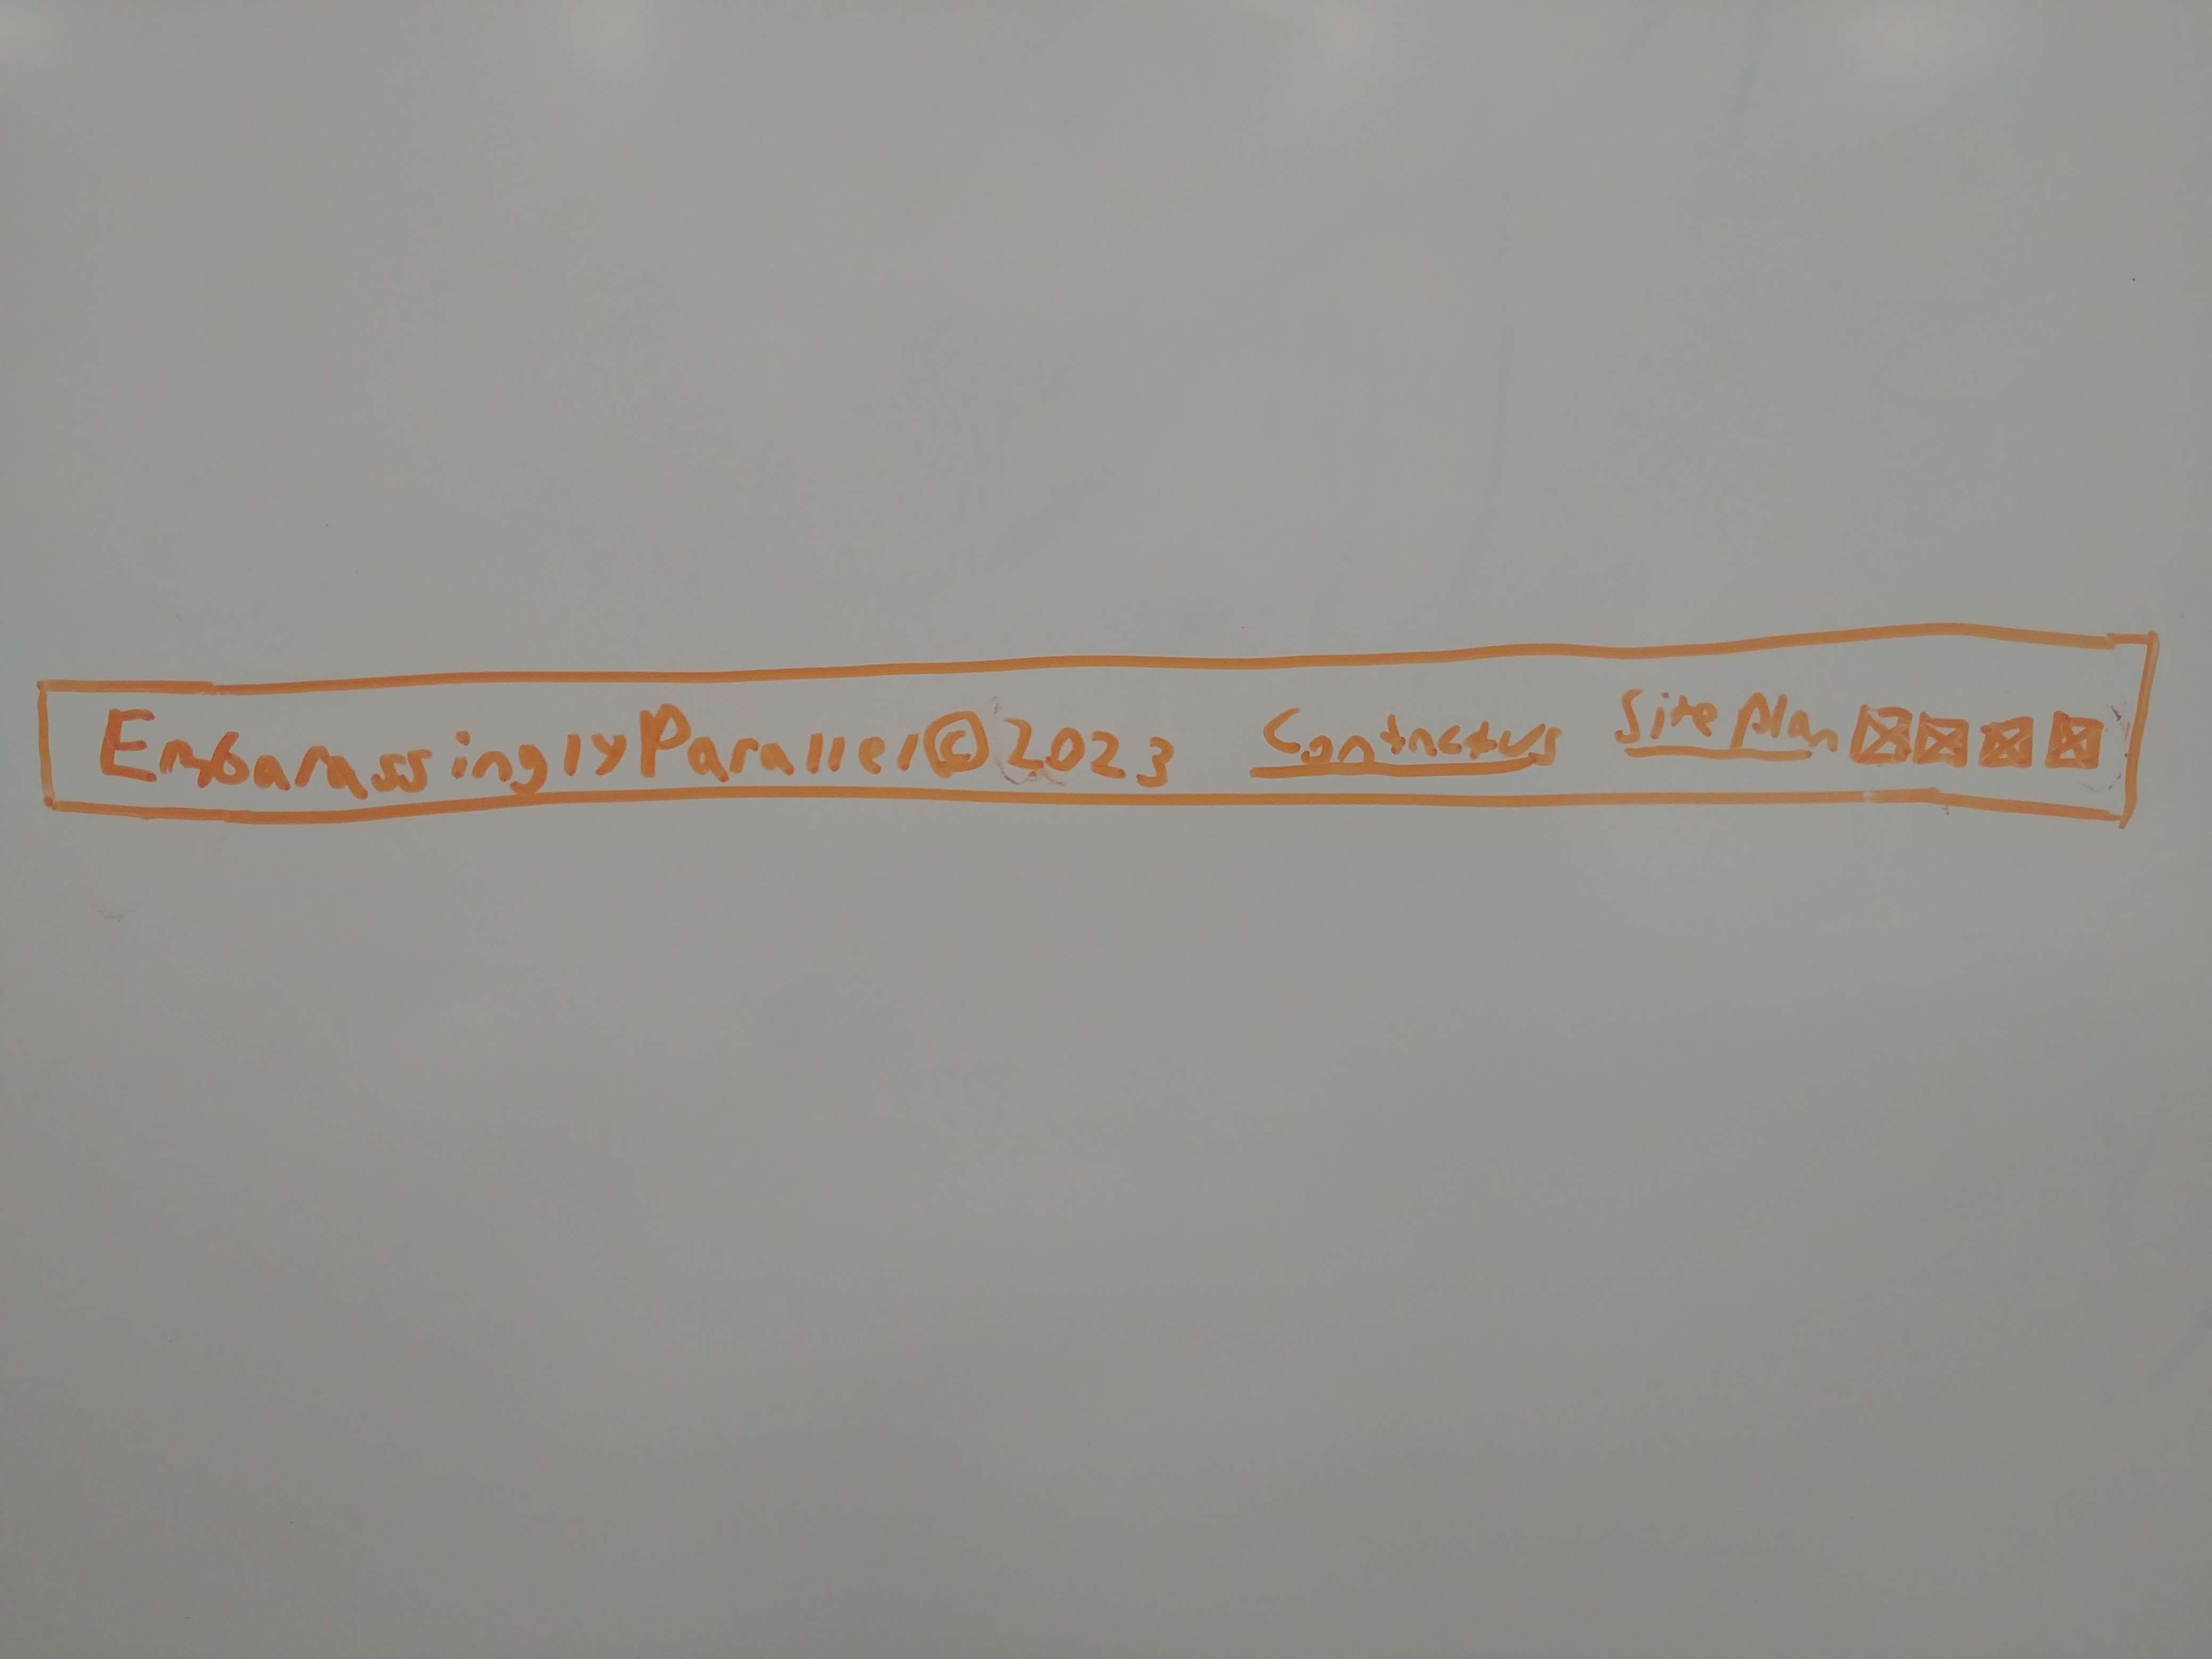 EmbarassinglyParallel©2023 Contact us Site plan